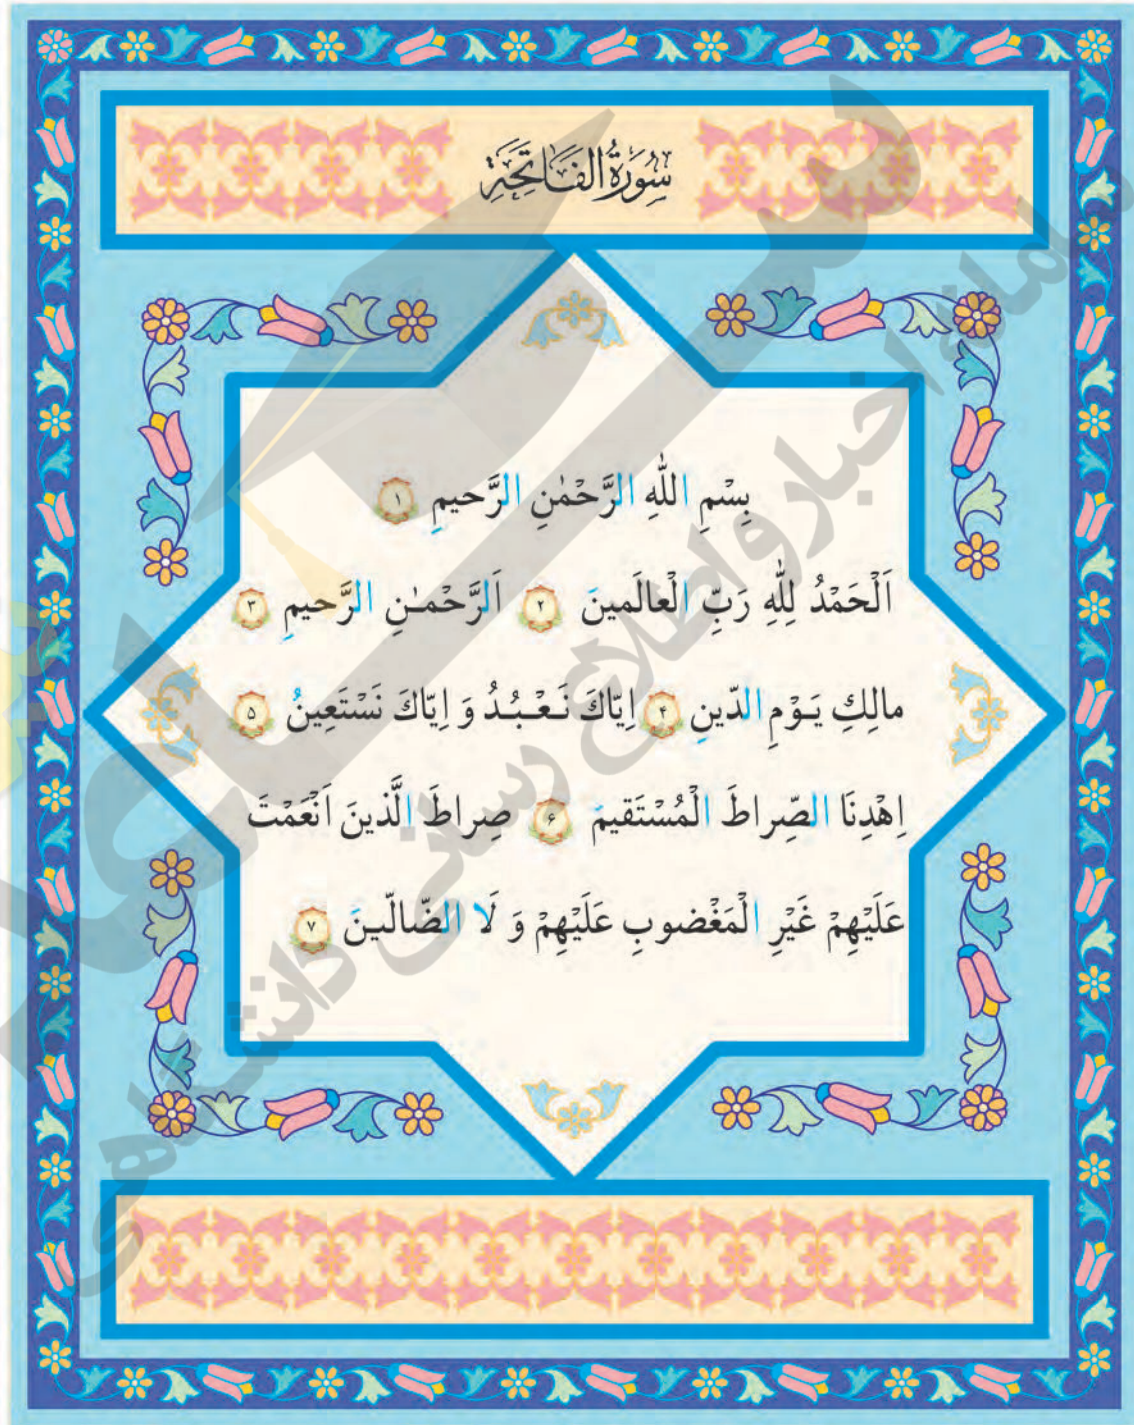 سُورَةُ الفَاتِحَةِ
بِسْمِ اللّٰهِ الرَّحْمٰنِ الرَّحيمِ ۱
اَلْحَمْدُ لِلّٰهِ رَبِّ الْعالَمينَ ۲ اَلرَّحْمـٰنِ الرَّحيمِ ۳
مالِكِ يَـوْمِ الدّينِ ۴ اِيّاكَ نَـعْـبُـدُ وَ اِيّاكَ نَسْتَعينُ ۵
اِهْدِنَا الصِّراطَ الْمُسْتَقيمَ ۶ صِراطَ الَّذينَ اَنْعَمْتَ
عَلَيْهِمْ غَيْرِ الْمَغْضوبِ عَلَيْهِمْ وَ لَا الضّالّـينَ ۷
سامانه اخبار و اطلاع رسانی دانشگاهی